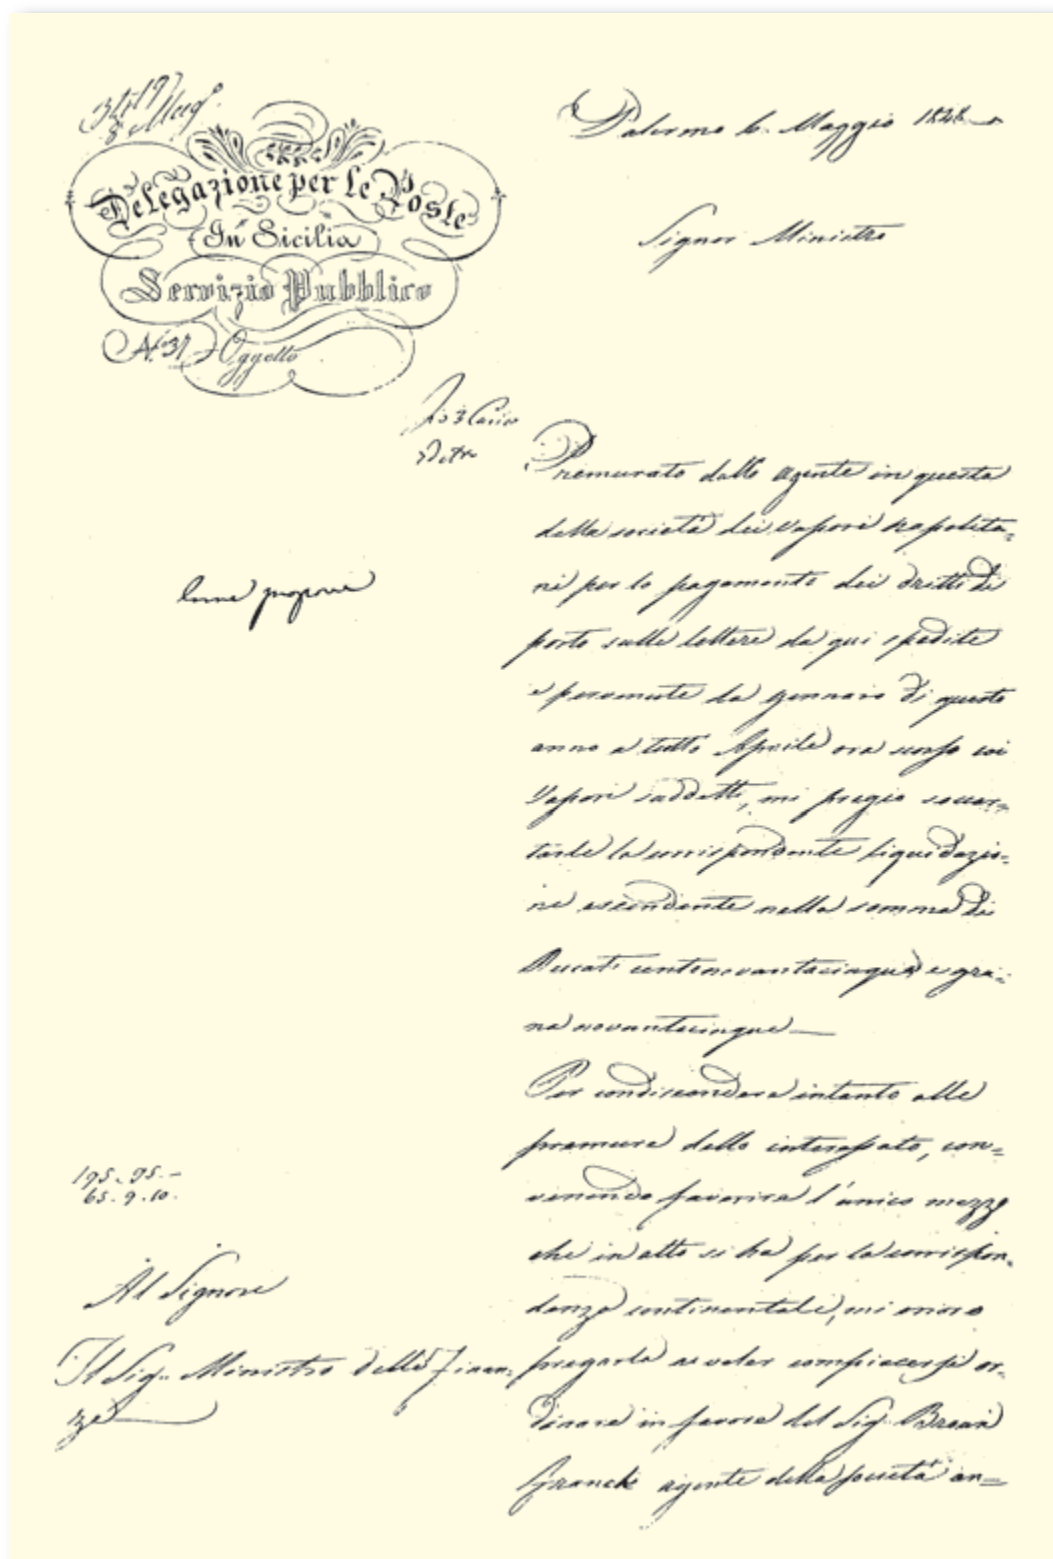 8 Mag°
Delegazione per le Poste
In Sicilia
Servizio Pubblico
N.° 37 Oggetto
Palermo 6. Maggio 1848
Signor Ministro
Come propone
Premurato dallo agente in questa
della società dei vapori napolita=
ni per lo pagamento dei dritti di
porto sulle lettere da qui spedite
e pervenute da gennaro di questo
anno a tutto Aprile ora scorso coi
Vapori suddetti, mi pregio
la corrispondente liquidazio=
ne ascendente nella somma di
Ducati centonovantacinque e gra=
na novantacinque —
Per condiscendere intanto alle
premure dello interessato, con=
venendo favorire l'unico mezzo
che in atto si ha per la corrispon=
denza continentale, mi onoro
pregarla a voler compiacersi or=
dinare in favore del Sig.
Franchi agente della società an=
195. 95. -
65. 9. 10.
Al Signore
Il Sig. Ministro delle Finan=
ze